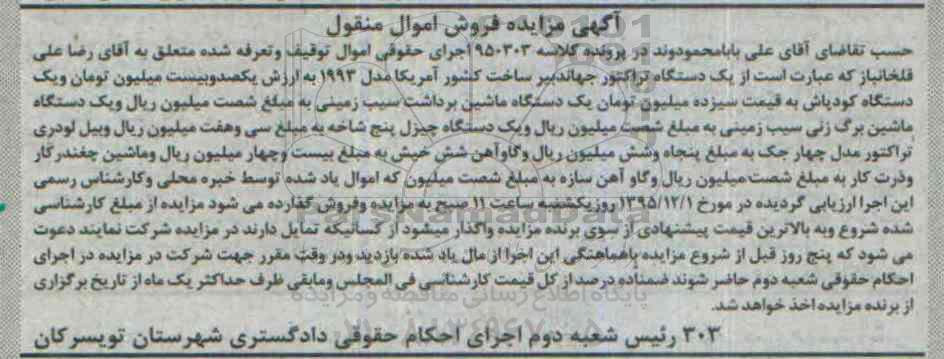 آگهی مزایده فروش اموال منقول
حسب تقاضای آقای علی بابامحمودوند در پرونده کلاسه ۹۵۰۳۰۳ اجرای حقوقی اموال توقیف وتعرفه شده متعلق به آقای رضا علی
قلخانباز که عبارت است از یک دستگاه تراکتور جهاندیبر ساخت کشور آمریکا مدل ۱۹۹۳ به ارزش یکصدوبیست میلیون تومان ویک
دستگاه کودپاش به قیمت سیزده میلیون تومان یک دستگاه ماشین برداشت سیب زمینی به مبلغ شصت میلیون ریال ویک دستگاه
ماشین برگ زنی سیب زمینی به مبلغ شصت میلیون ریال ویک دستگاه چیزل پنج شاخه به مبلغ سی وهفت میلیون ریال وبیل لودری
تراکتور مدل چهار جک به مبلغ پنجاه وشش میلیون ریال وگاوآهن شش خیش به مبلغ بیست وچهار میلیون ریال وماشین چغندرکار
وذرت کار به مبلغ شصت میلیون ریال وگاو آهن سازه به مبلغ شصت میلیون که اموال یاد شده توسط خبره محلی وکارشناس رسمی
این اجرا ارزیابی گردیده در مورخ ۱۳۹۵/۱۲/۱ روز یکشنبه ساعت ۱۱ صبح به مزایده وفروش گذارده می شود مزایده از مبلغ کارشناسی
شده شروع وبه بالاترین قیمت پیشنهادی از سوی برنده مزایده واگذار میشود از کسانیکه تمایل دارند در مزایده شرکت نمایند دعوت
می شود که پنج روز قبل از شروع مزایده باهماهنگی این اجرا از مال یاد شده بازدید ودر وقت مقرر جهت شرکت در مزایده در اجرای
احکام حقوقی شعبه دوم حاضر شوند ضمناده درصد از کل قیمت کارشناسی فی المجلس ومابقی ظرف حداکثر یک ماه از تاریخ برگزاری
از برنده مزایده اخذ خواهد شد.
۳۰۳ رئیس شعبه دوم اجرای احکام حقوقی دادگستری شهرستان تویسرکان
ParsNamadData
پایگاه اطلاع رسانی مناقصه و مزایده